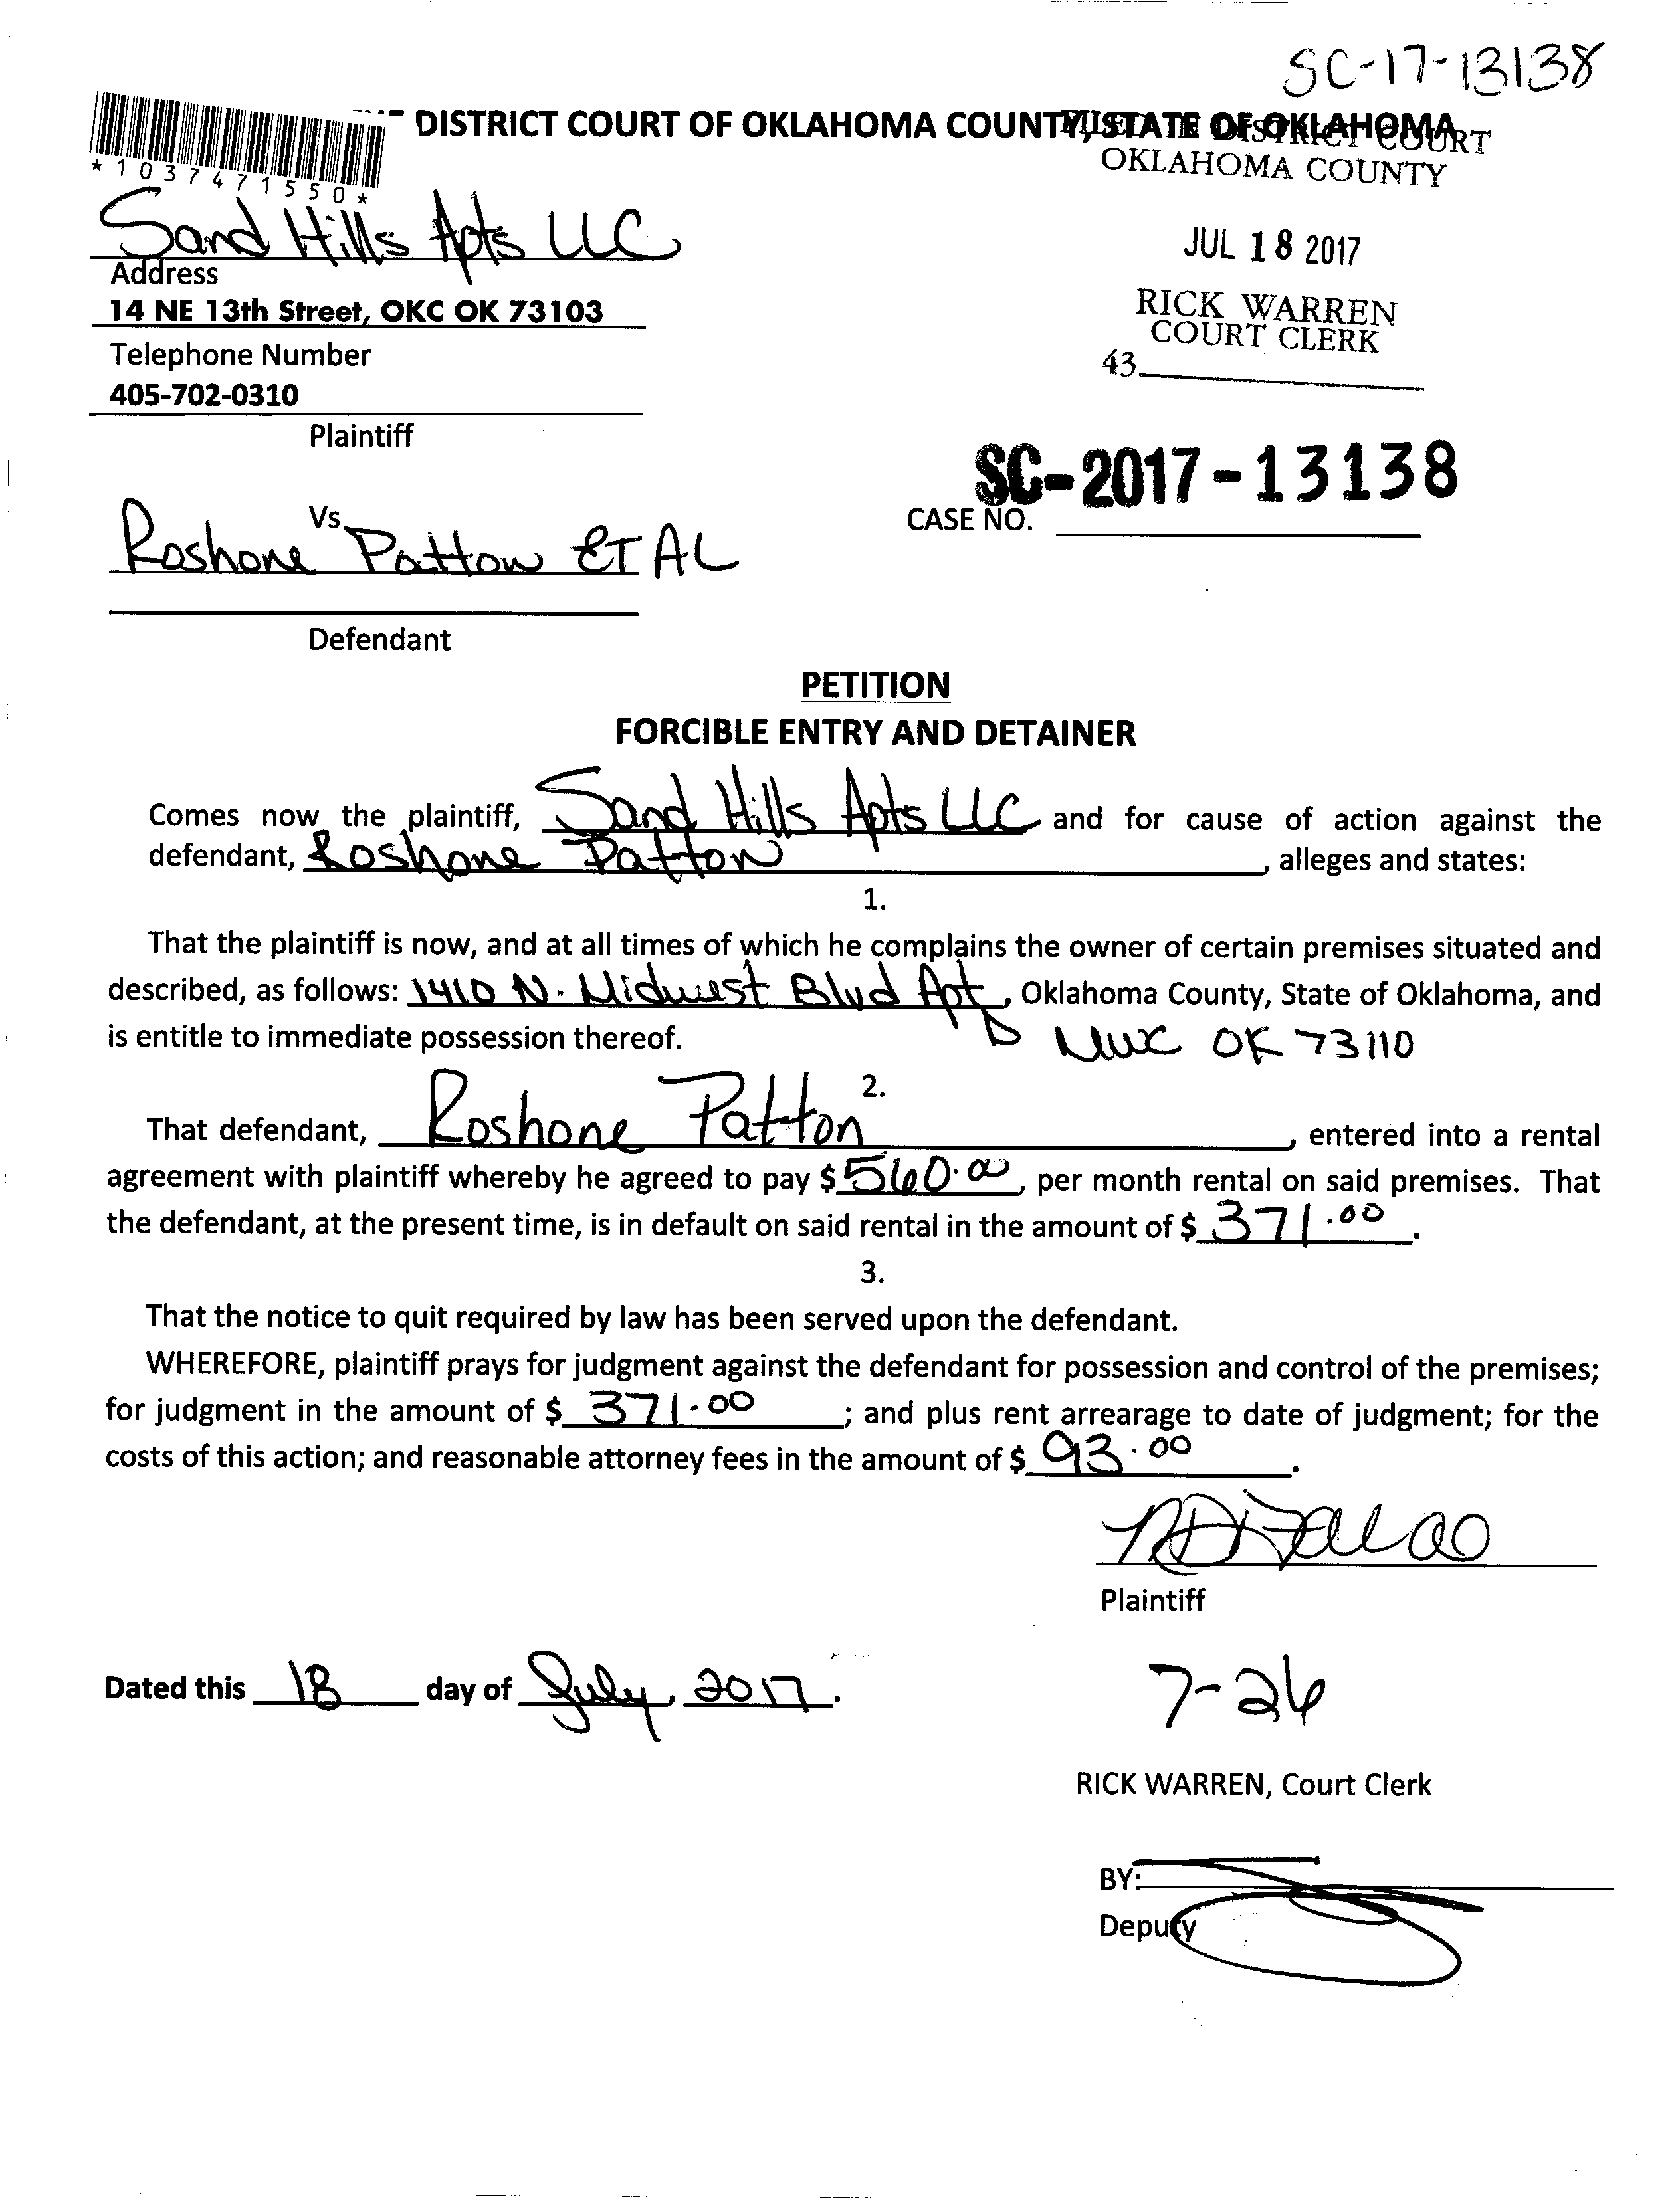 SC-17-13138
DISTRICT COURT OF OKLAHOMA COUNTY, STATE OF OKLAHOMA
FILED IN DISTRICT COURT
OKLAHOMA COUNTY
*1037471550*
JUL 18 2017
RICK WARREN
COURT CLERK
43
Sand Hills Apts LLC
Address
14 NE 13th Street, OKC OK 73103
Telephone Number
405-702-0310
Plaintiff
SC-2017-13138
CASE NO.
Vs
Roshone Patton ET AL
Defendant
PETITION
FORCIBLE ENTRY AND DETAINER
Comes now the plaintiff, Sand Hills Apts LLC and for cause of action against the
defendant, Roshone Patton, alleges and states:
1.
That the plaintiff is now, and at all times of which he complains the owner of certain premises situated and
described, as follows: 1410 N. Midwest Blvd Apt, Oklahoma County, State of Oklahoma, and
is entitle to immediate possession thereof. D MWC OK 73110
2.
That defendant, Roshone Patton, entered into a rental
agreement with plaintiff whereby he agreed to pay $ 560.00, per month rental on said premises. That
the defendant, at the present time, is in default on said rental in the amount of $ 371.00.
3.
That the notice to quit required by law has been served upon the defendant.
WHEREFORE, plaintiff prays for judgment against the defendant for possession and control of the premises;
for judgment in the amount of $ 371.00; and plus rent arrearage to date of judgment; for the
costs of this action; and reasonable attorney fees in the amount of $ 93.00.
Plaintiff
Dated this 18 day of July, 2017.
7-26
RICK WARREN, Court Clerk
BY:
Deputy